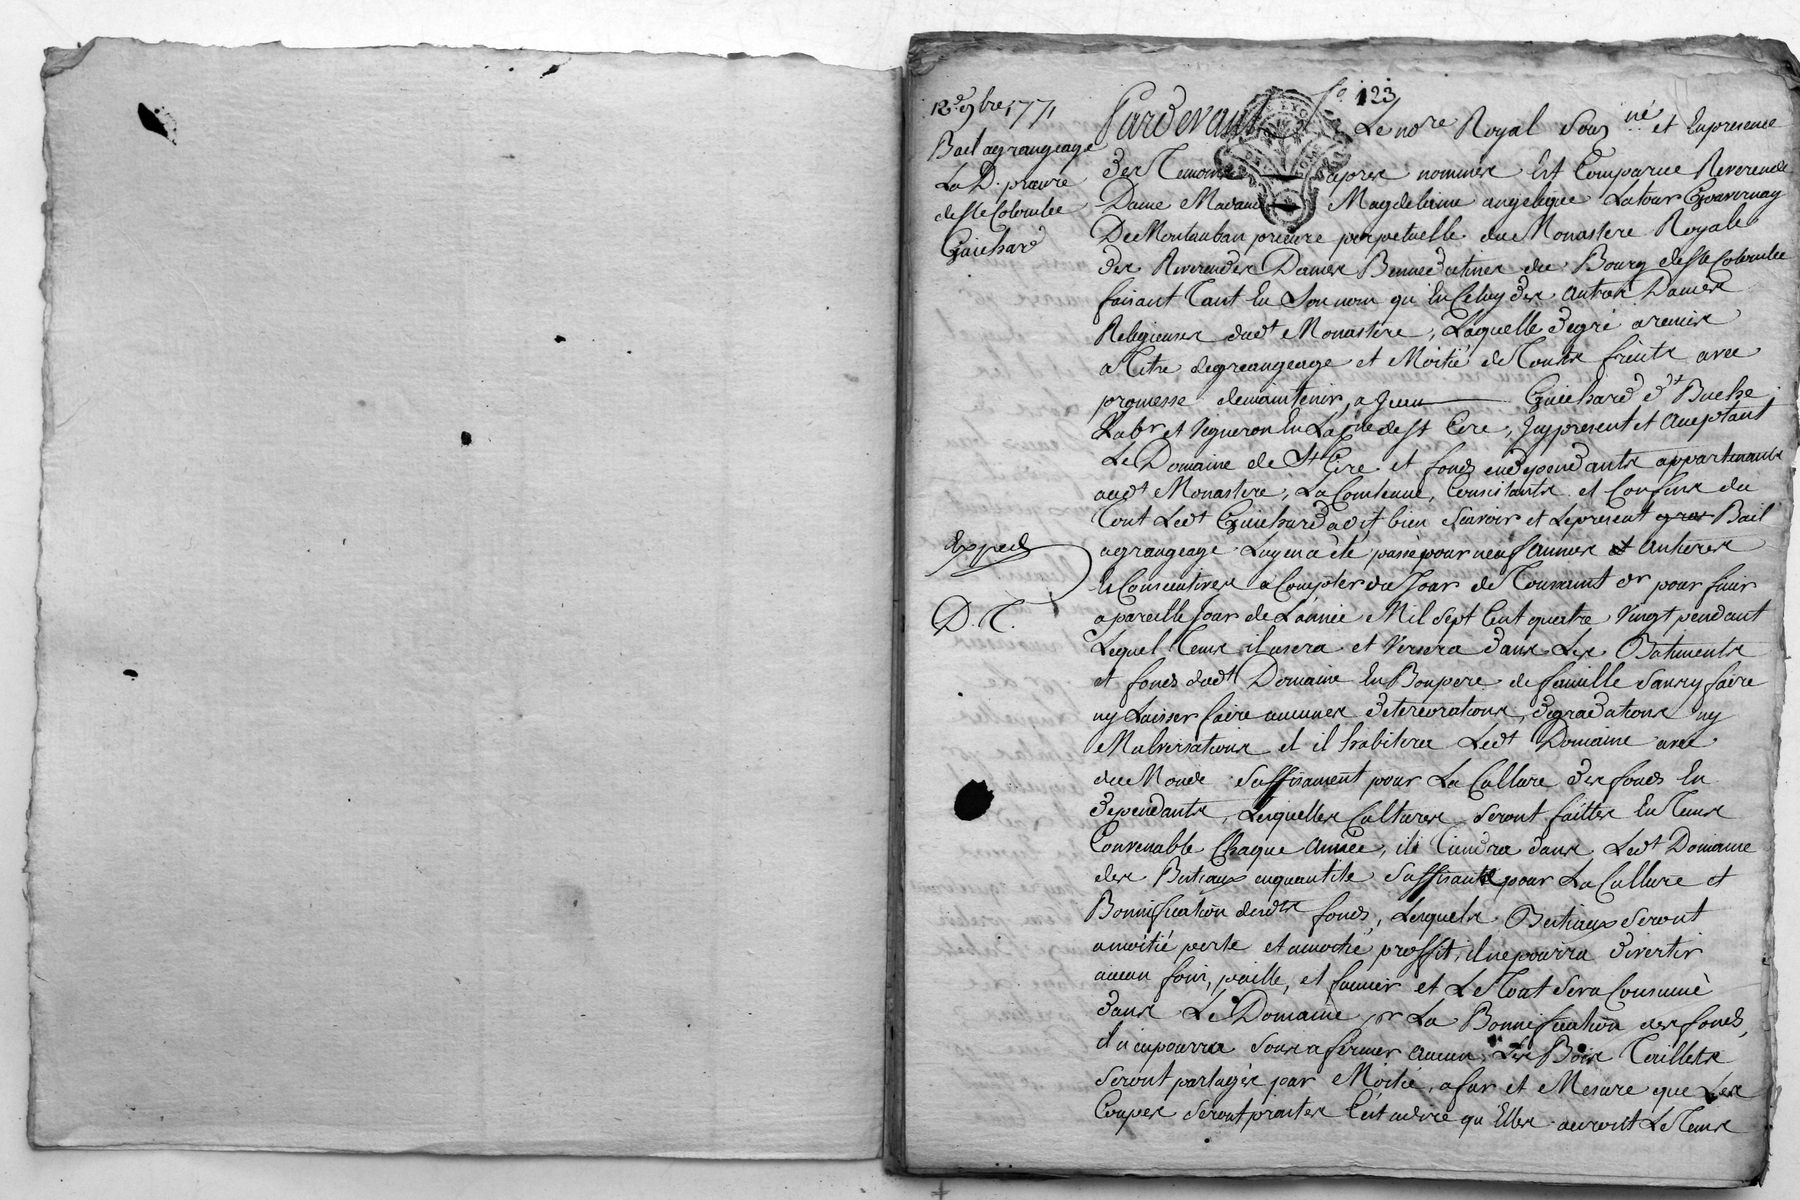 fo 123
12e 9bre 1771
Bail agrangeage
La D. prieure
de Ste Colombe
Guichard
Exped
D. C.
Pardevant Le nore Royal Sousné et En presence
des Temoins apres nommes Est Comparue Reverende
Dame Madame Magdeleine angelique Latour Gouvernay
De Montauban prieure perpetuelle du Monastere Royale
des Reverendes Dames Bennedictines du Bourg de Ste Colombe
faisant Tant En Son nom qu'En Celuy des autres Dames
Religieuses dudt Monastere, Laquelle degré a remis
a Titre degrangeage et Moitié de Touts fruits avec
promesse demaintenir, a Jean Guichard dt Buche
Labr et Vigneron En La psse de St Cire, Jcy present et acceptant
Le Domaine de St Cire et fonds endependants appartenants
audt Monastere, La Contenue, Consistants et Confins du
Tout Ledt Guichard a dit bien Scavoir et Lepresent Bail
agrangeage Luy en a été passé pour neuf années Antieres
Et Consecutives a Compter du Jour de Toussaint dr pour finir
a pareille Jour de L'année Mil Sept Cent quatre Vingt pendant
Lequel Tems il usera et Versera dans Les Batiments
et fonds dudt Domaine En Bonpere de famille Sans y faire
ny Laisser faire aucunes deteriorations, degradations ny
Malversations et il habitera Ledt Domaine avec
du Monde Suffisament pour La Culture des fonds En
dependants, Lesquelles Cultures Seront faittes En Tems
Convenable Chaque Année, il Tiendra dans Ledt Domaine
des Bestiaux enquantité Suffisante pour La Culture et
Bonnification desdts fonds, Lesquels Bestiaux Seront
amoitié perte et amoitié proffit, il ne pourra divertir
aucun foin, paille, et fumier et Le Tout Sera Consumé
dans Le Domaine pr La Bonnification des fonds,
il n'enpourra Sous afermer Aucun, Les Bois Taillets
Seront partagés par Moitié, afur et Mesure que Les
Coupes Seront prises C'est adire qu'Elles auront Le Tems